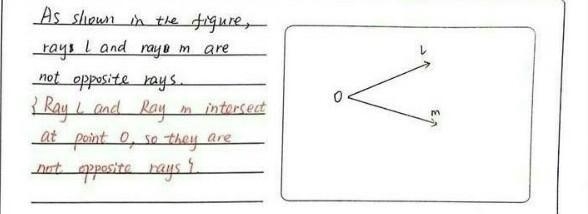 As shown in the figure,
rays l and rays m are
not opposite rays.
{ Ray L and Ray m intersect
at point O, so they are
not opposite rays }.
l
O
m